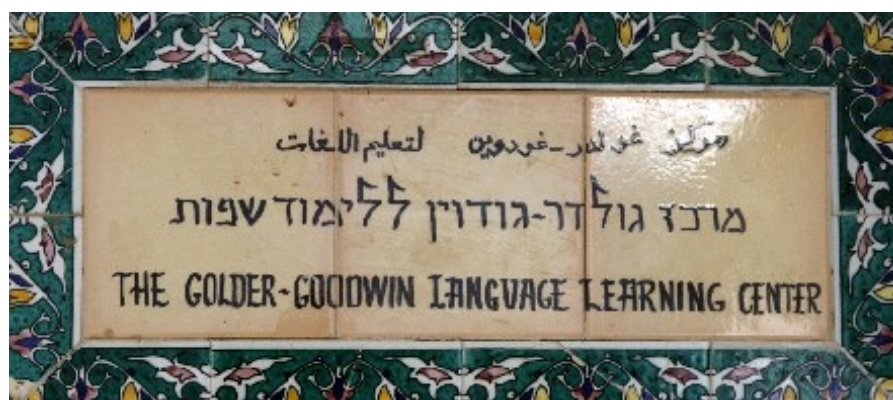 مركز غولدر-غودوين لتعليم اللغات
מרכז גולדר-גודוין ללימוד שפות
THE GOLDER-GOODWIN LANGUAGE LEARNING CENTER